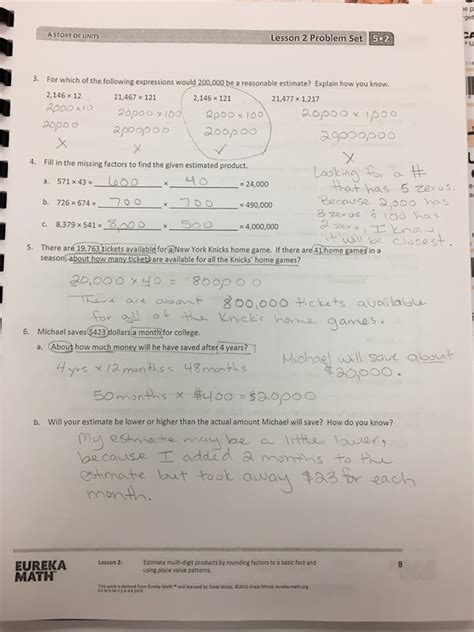 A STORY OF UNITS
Lesson 2 Problem Set 5•2
3. For which of the following expressions would 200,000 be a reasonable estimate? Explain how you know.
2,146 × 12 21,467 × 121 2,146 × 121 21,477 × 1,217
2000 × 10 20,000 × 100 2,000 × 100 20,000 × 1,000
20,000 2,000,000 200,000 20,000,000
X X ✓ X
4. Fill in the missing factors to find the given estimated product.
a. 571 × 43 ≈ 600 × 40 = 24,000
b. 726 × 674 ≈ 700 × 700 = 490,000
c. 8,379 × 541 ≈ 8,000 × 500 = 4,000,000
Looking for a #
that has 5 zeros.
Because 2,000 has
3 zeros & 100 has
2 zeros, I know
it will be closest.
5. There are 19,763 tickets available for a New York Knicks home game. If there are 41 home games in a
season, about how many tickets are available for all the Knicks' home games?
20,000 × 40 = 800,000
There are about 800,000 tickets available
for all of the Knick's home games.
6. Michael saves $423 dollars a month for college.
a. About how much money will he have saved after 4 years?
4 yrs × 12 months = 48 months
50 months × $400 = $20,000
Michael will save about
$20,000.
b. Will your estimate be lower or higher than the actual amount Michael will save? How do you know?
My estimate may be a little lower,
because I added 2 months to the
estimate but took away $23 for each
month.
EUREKA
MATH
Lesson 2: Estimate multi-digit products by rounding factors to a basic fact and
using place value patterns.
8
This work is derived from Eureka Math ™ and licensed by Great Minds. ©2015 Great Minds. eureka-math.org